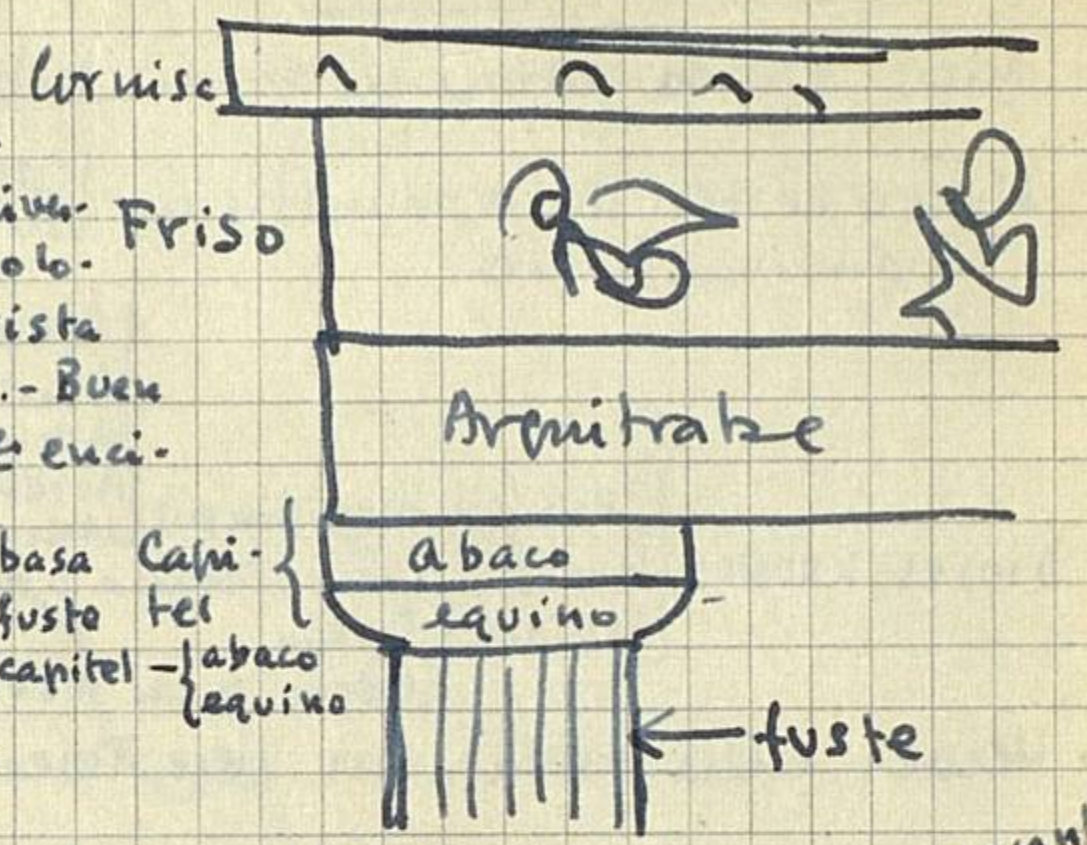 Cornisa
Friso
ista
.- Buen
enci-
Arquitrabe
basa Capi-
fuste tel
capitel - { abaco
{ equino
abaco
equino
fuste